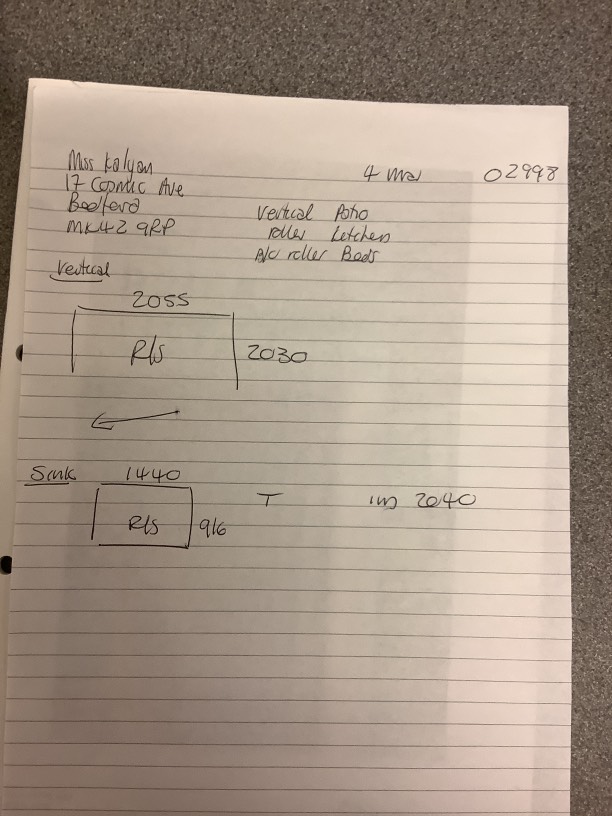 Miss Kalyan
4 Mar 02998
17 Ave
Bedford
MK42 9RP
Vertical Patio
roller kitchen
roller Beds
Vertical
2055
R/S
2030
Sink 1440
T
2040
R/S
916